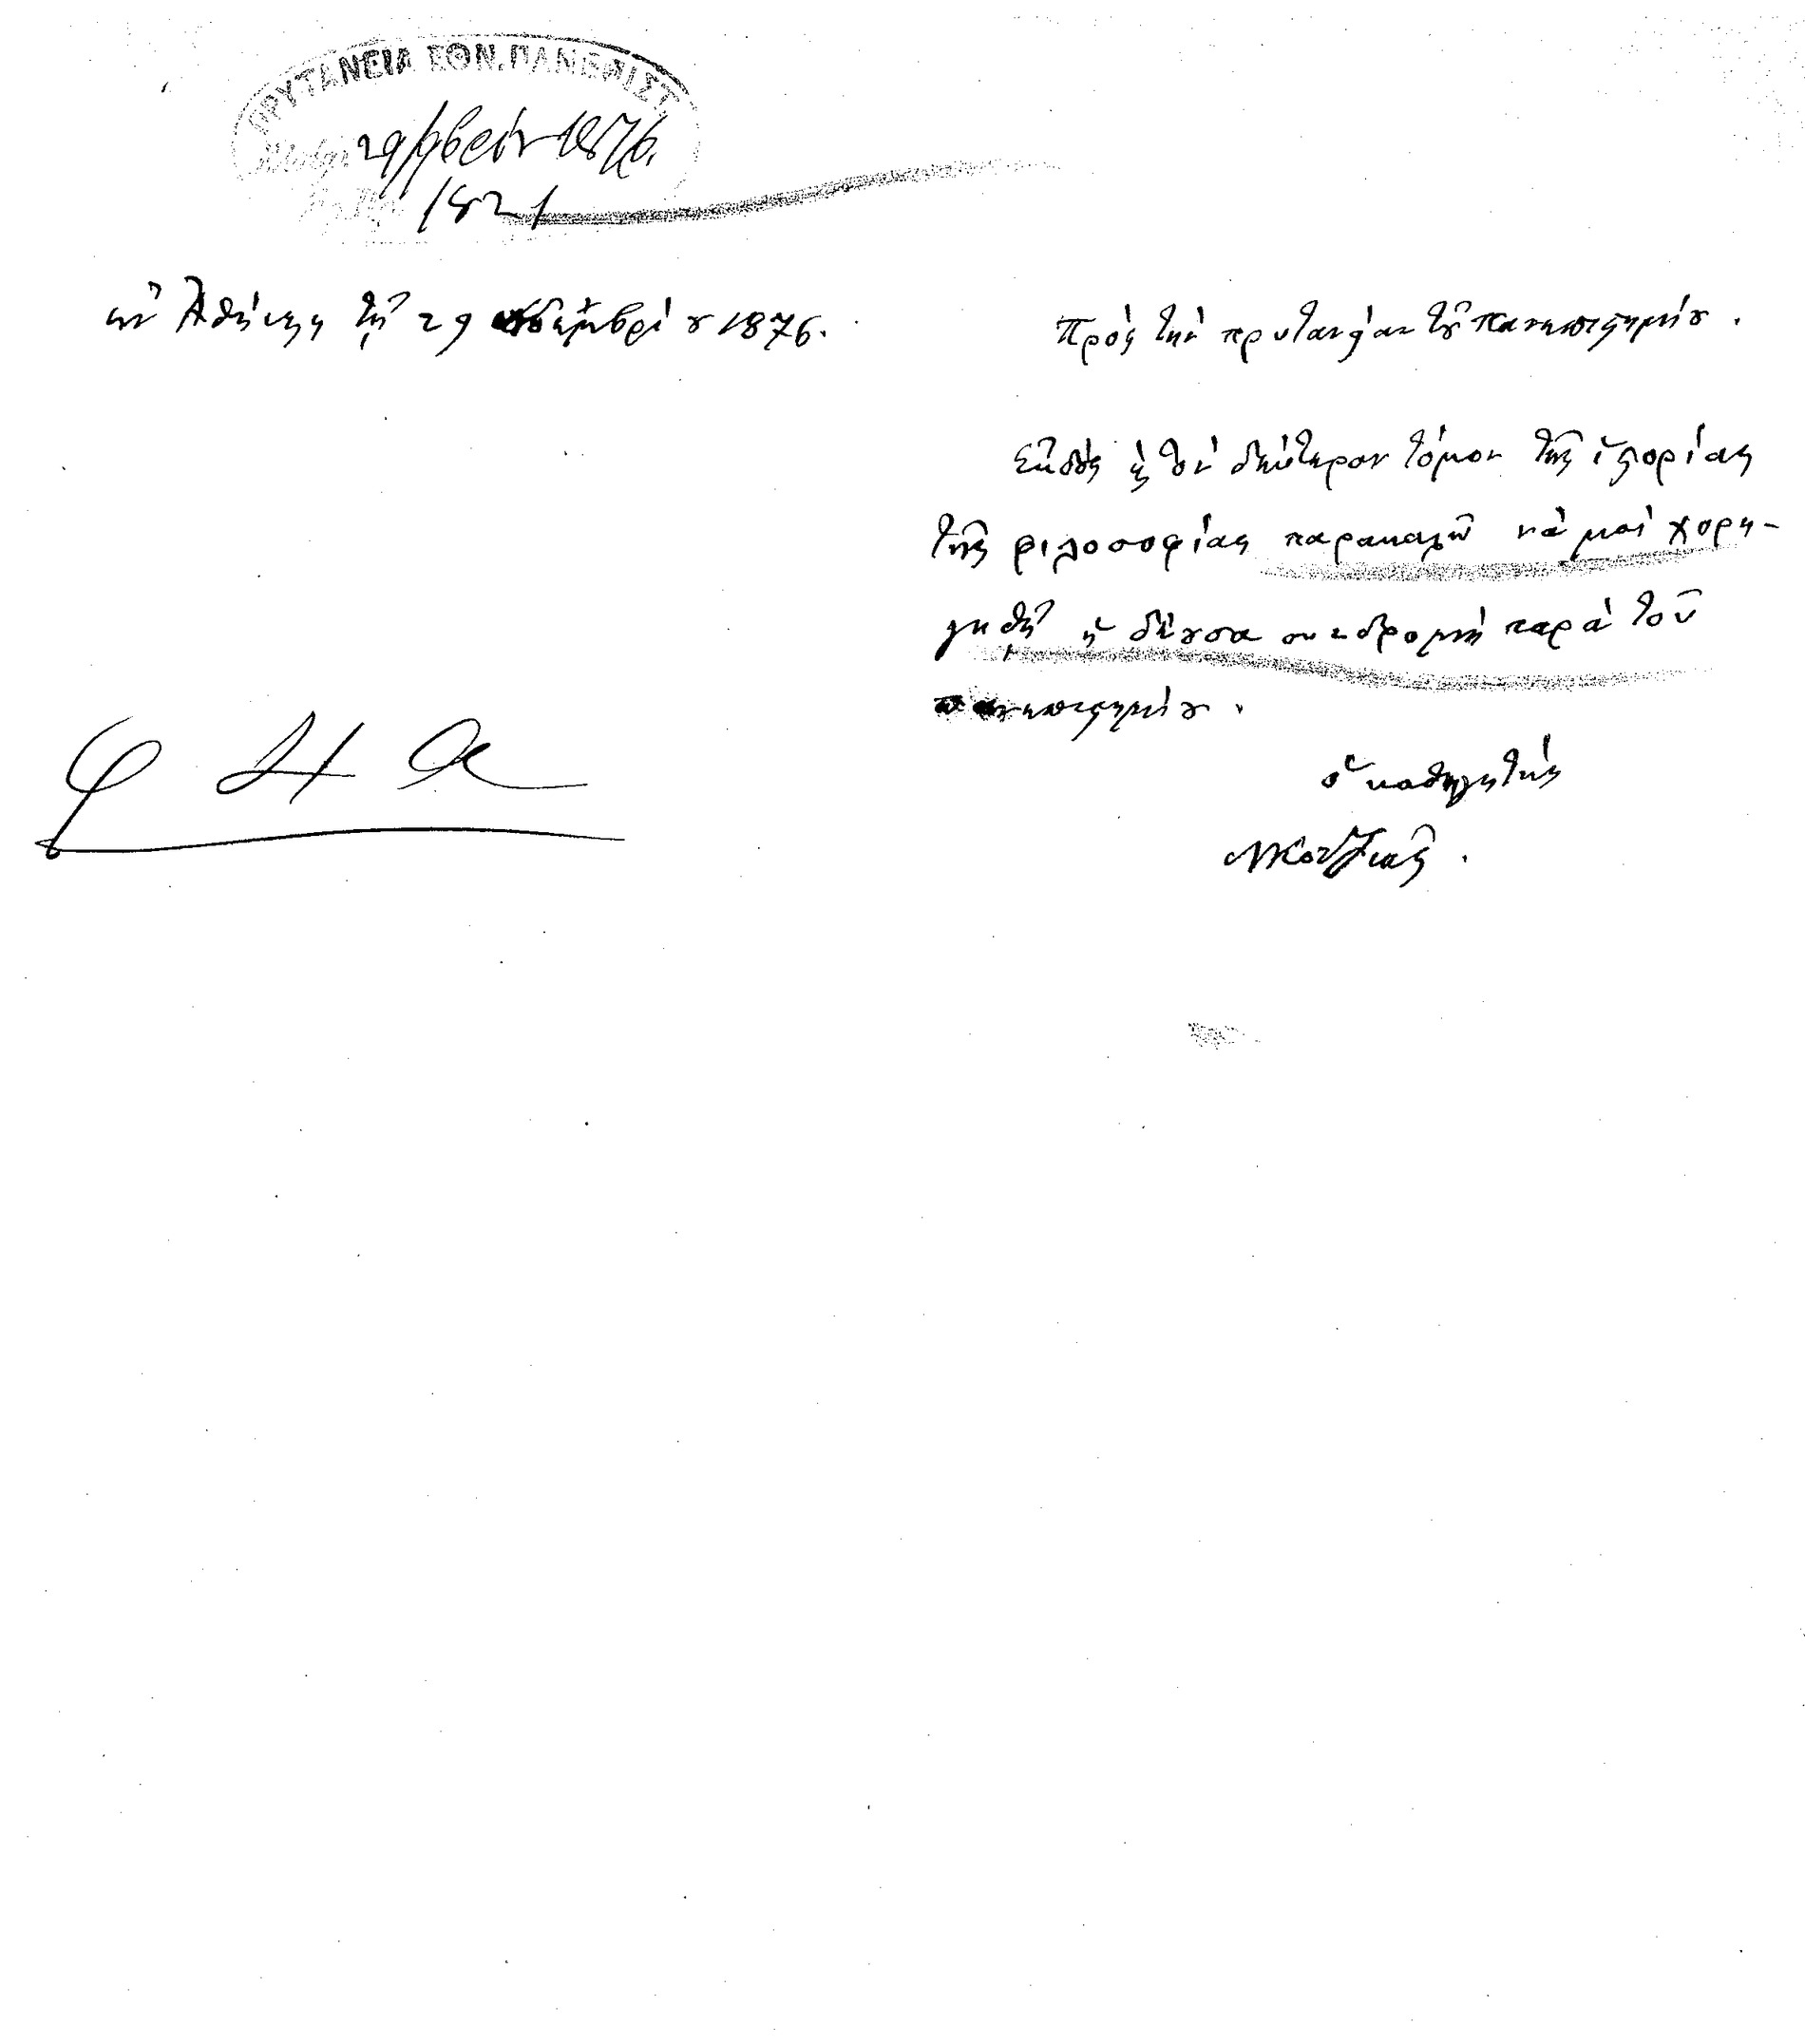 ΠΡΥΤΑΝΕΙΑ ΕΘΝ. ΠΑΝΕΠΙΣΤ.
29 1876.
1821
ἐν Ἀθήναις τῇ 29 1876.
Πρὸς τὴν πρυτανείαν τοῦ πανεπιστημίου.
Ἐκδοὺς καὶ τὸν δεύτερον τόμον τῆς ἱστορίας
τῆς φιλοσοφίας παρακαλῶ νὰ μοὶ χορη-
γηθῇ ἡ δέουσα συνδρομὴ παρὰ τοῦ
πανεπιστημίου.
ὁ καθηγητής
ΝΚοτζιᾶς.